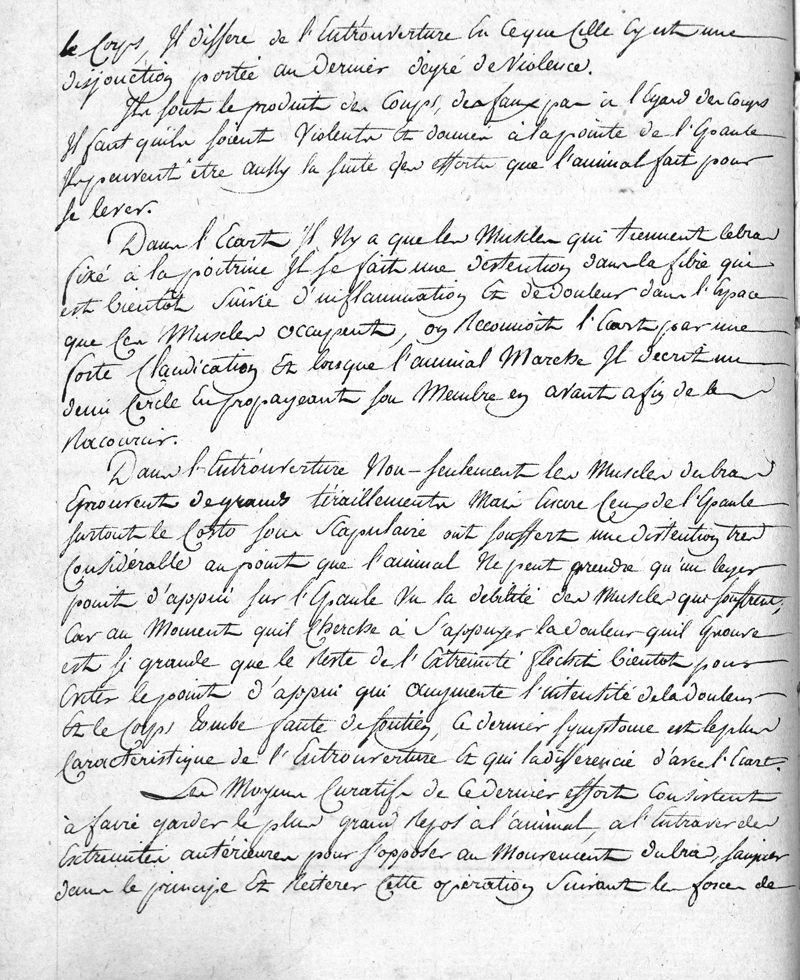 le Corps, Il differe de l'Entrouverture En ceque Celle Cy est une
disjonction portée au Dernier dégré de Violence.
Ils sont le produit des Coups, des faux pas à l'Egard des Coups
Il faut qu'ils soient Violents Et donnés à la pointe de l'Epaule
Ils peuvent être aussy la suite des efforts que l'animal fait pour
se lever.
Dans l'Ecart Il Ny a que les Muscles qui tiennent lebras
fixé à la poitrine Il se fait une distention dans la fibre qui
est bientôt Suivie d'inflammation Et de douleur dans l'Espace
que Ces Muscles occupent, on Reconnoit l'Ecart par une
forte Claudication Et lorsque l'animal Marche Il decrit un
demi Cercle En propageant son Membre en avant afin de le
Racourcir.
Dans l'Entrouverture Non-seulement les Muscles du bras
Eprouvent de grands tiraillements Mais Encore Ceux de l'Epaule
surtout le Costo sous Scapulaire ont souffert une distention tres
Considérable au point que l'animal Ne peut prendre qu'un leger
point d'appui sur l'Epaule Vu la debilité des Muscles qui souffrent,
Car au Moment quil Cherche à S'appuyer la douleur quil Eprouve
est si grande que le Reste de l'Extremité flechit bientot pour
Eviter le point d'appui qui augmente l'intensité de la douleur
Et le Corps tombe faute de soutien, Ce dernier symptome est le plus
Caractéristique de l'Entrouverture Et qui la differencie d'avec l'Ecart.
Les Moyens Curatifs de Ce dernier effort Consistent
à faire garder le plus grand Repos à l'animal, a l'Entraver des
Extremités antérieures pour s'opposer au Mouvement du bras, saigner
dans le principe Et Réiterer Cette opération Suivant les forces de